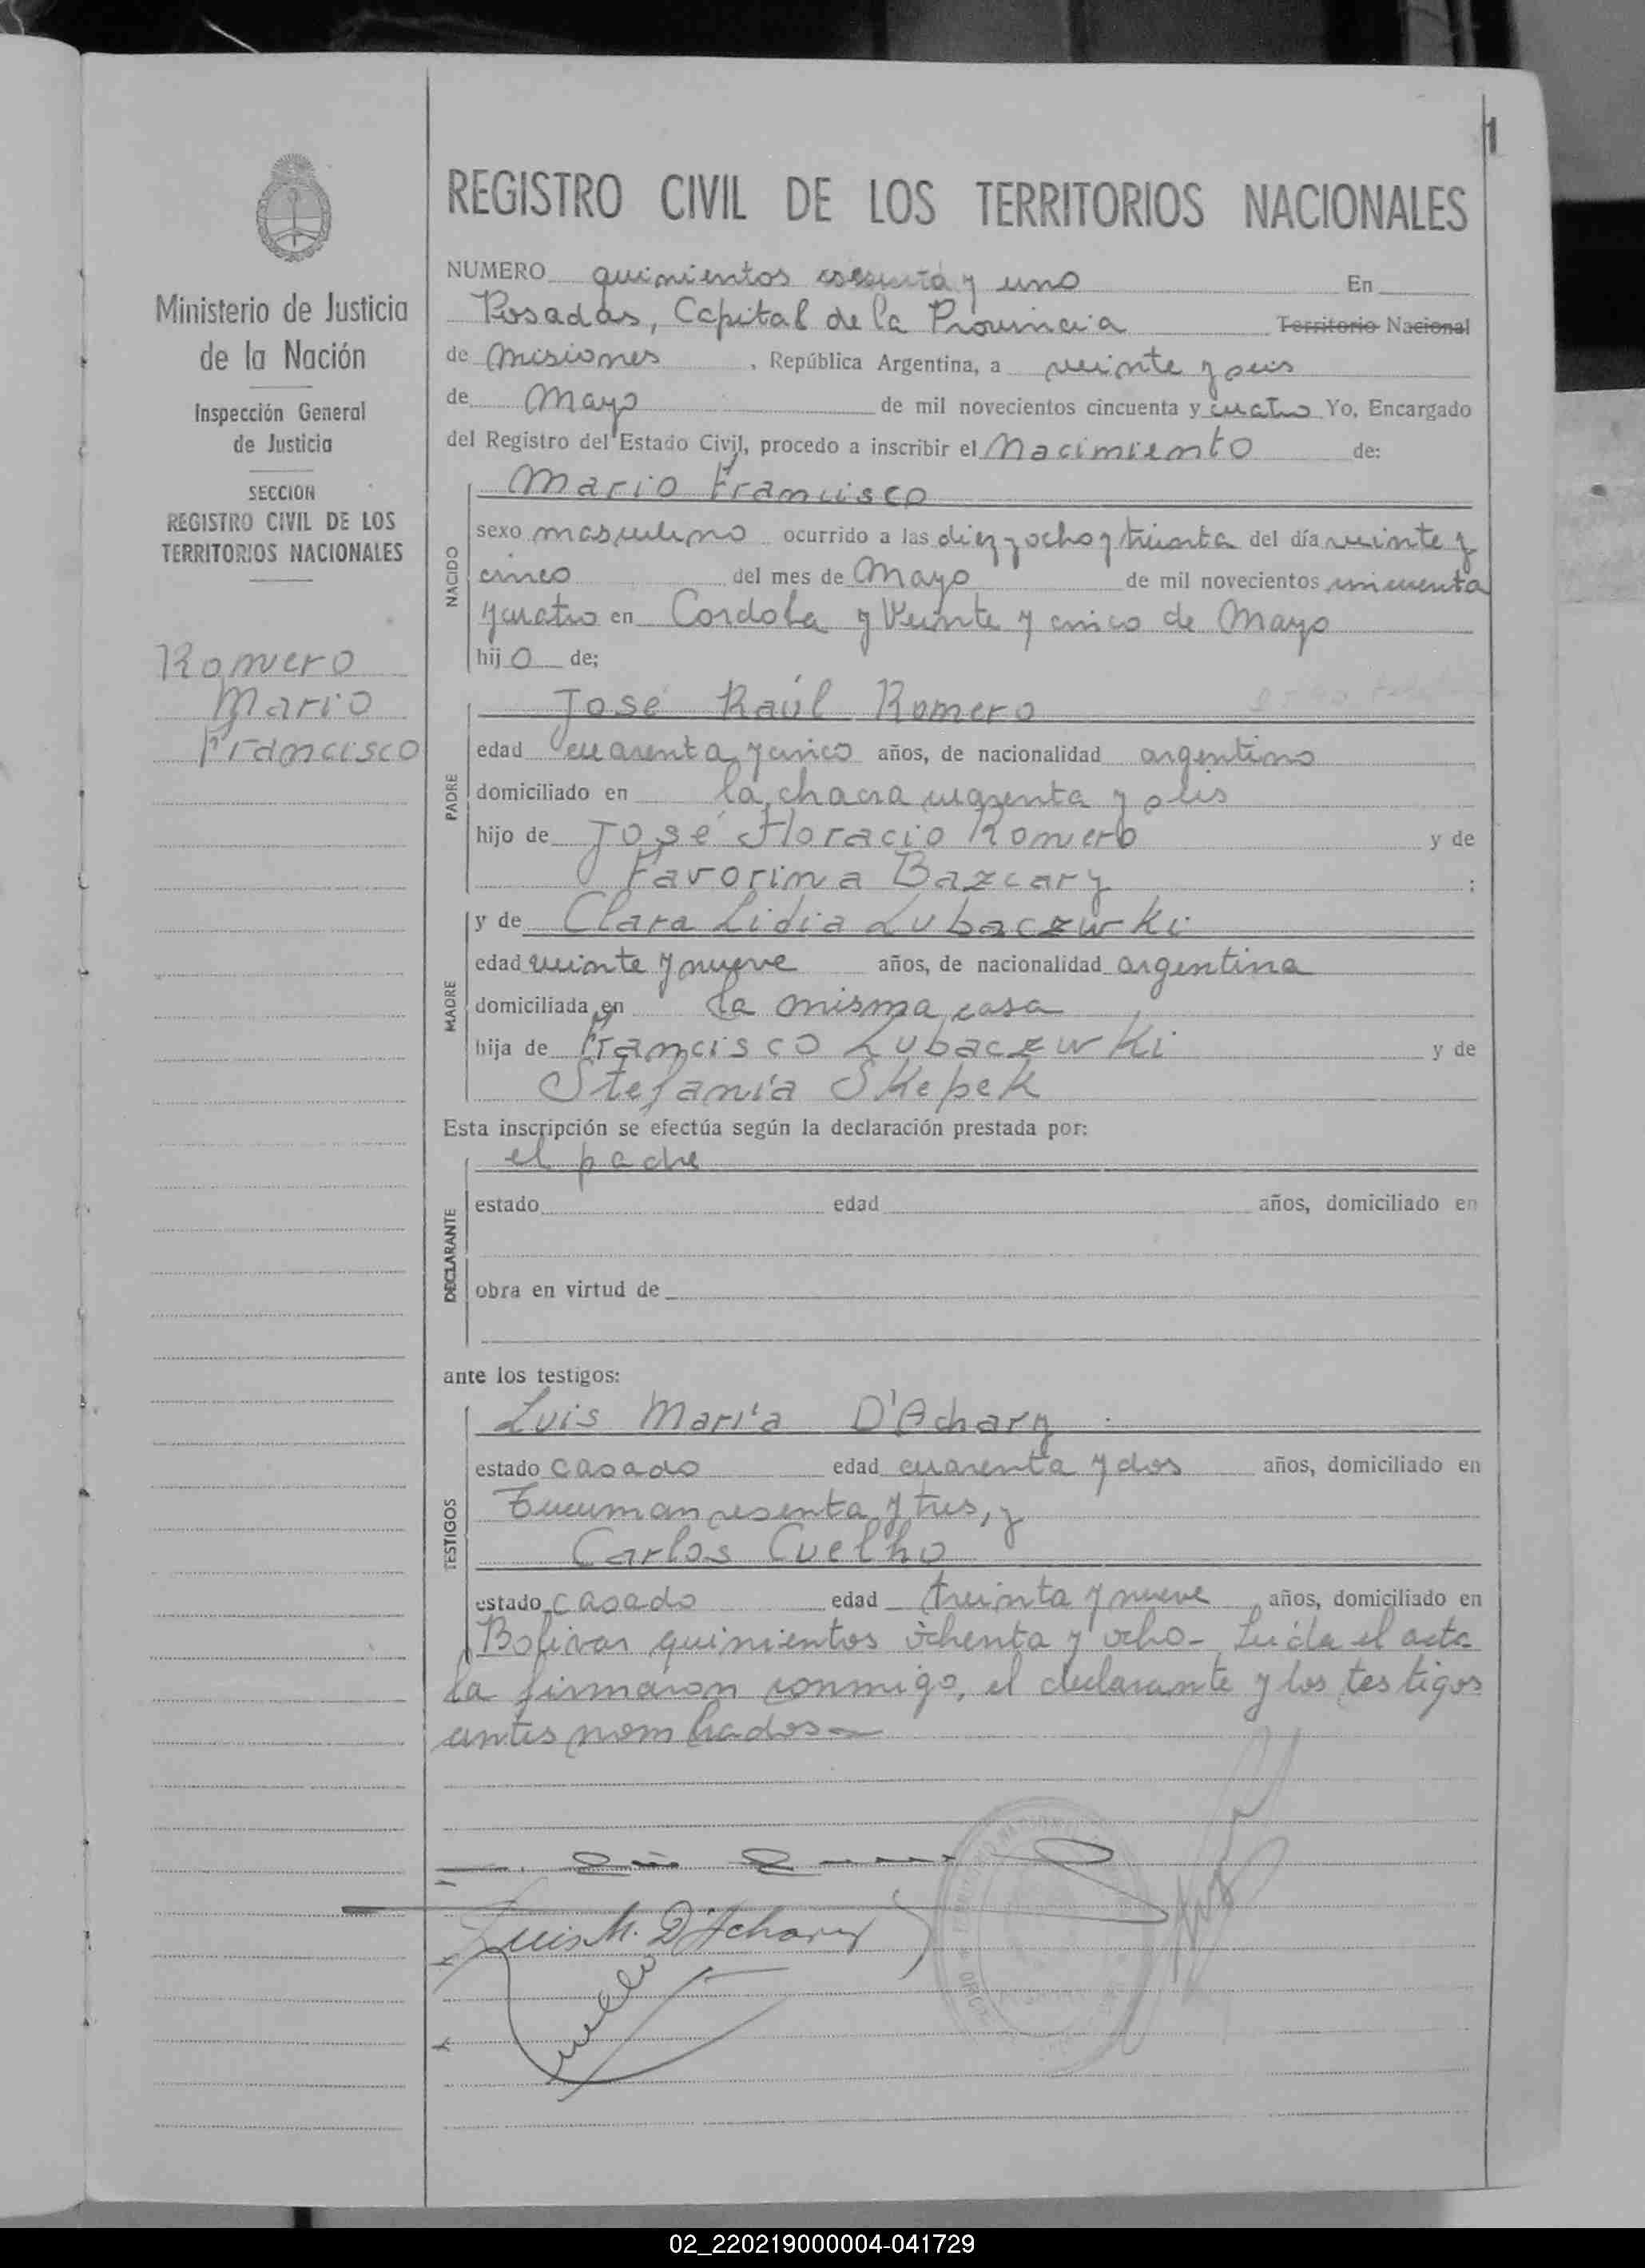 1
REGISTRO CIVIL DE LOS TERRITORIOS NACIONALES
Ministerio de Justicia
de la Nación
Inspección General
de Justicia
SECCION
REGISTRO CIVIL DE LOS
TERRITORIOS NACIONALES
Romero
Mario
Francisco
NUMERO quinientos sesenta y uno En
Posadas, Capital de la Provincia Territorio Nacional
de Misiones, República Argentina, a veinte y seis
de Mayo de mil novecientos cincuenta y cuatro Yo, Encargado
del Registro del Estado Civil, procedo a inscribir el Nacimiento de:
NACIDO
Mario Francisco
sexo masculino ocurrido a las diez y ocho y treinta del día veinte y
cinco del mes de Mayo de mil novecientos cincuenta
y cuatro en Cordoba y Veinte y cinco de Mayo
hijo de;
PADRE
José Raúl Romero
edad cuarenta y cinco años, de nacionalidad argentino
domiciliado en la chacra cuarenta y
hijo de José Horacio Romero y de
Favorina Bazcary ;
MADRE
y de Clara Lidia Lubaczwki
edad veinte y nueve años, de nacionalidad argentina
domiciliada en la misma casa
hija de Francisco Lubaczwki y de
Stefania Skepek
Esta inscripción se efectúa según la declaración prestada por:
DECLARANTE
el padre
estado edad años, domiciliado en
obra en virtud de
ante los testigos:
TESTIGOS
Luis María D'Achary
estado casado edad cuarenta y dos años, domiciliado en
Tucuman sesenta y tres, y
Carlos Cuelho
estado casado edad treinta y nueve años, domiciliado en
Bolivar quinientos ochenta y ocho- Leída el acta
la firmaron conmigo, el declarante y los testigos
antes nombrados-
Luis M. D'Achary
02_220219000004-041729